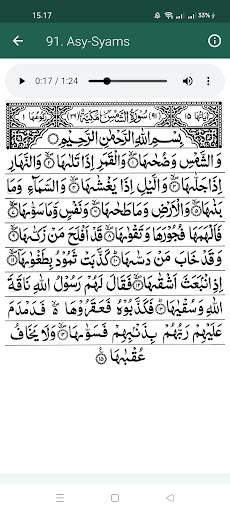 15.17
33%
91. Asy-Syams
0:17 / 1:24
رُكُوْعُهَا ١ (٩١) سُوْرَةُ الشَّمْسِ مَكِّيَّةٌ (٢٦) اٰيَاتُهَا ١٥
بِسْمِ اللهِ الرَّحْمٰنِ الرَّحِيْمِ
وَالشَّمْسِ وَضُحٰىهَا ۝١ وَالْقَمَرِ اِذَا تَلٰىهَا ۝٢ وَالنَّهَارِ
اِذَا جَلّٰىهَا ۝٣ وَالَّيْلِ اِذَا يَغْشٰىهَا ۝٤ وَالسَّمَآءِ وَمَا
بَنٰىهَا ۝٥ وَالْاَرْضِ وَمَا طَحٰىهَا ۝٦ وَنَفْسٍ وَّمَا سَوّٰىهَا ۝٧
فَاَلْهَمَهَا فُجُوْرَهَا وَتَقْوٰىهَا ۝٨ قَدْ اَفْلَحَ مَنْ زَكّٰىهَا ۝٩
وَقَدْ خَابَ مَنْ دَسّٰىهَا ۝١٠ كَذَّبَتْ ثَمُوْدُ بِطَغْوٰىهَا ۝١١
اِذِ انْۢبَعَثَ اَشْقٰىهَا ۝١٢ فَقَالَ لَهُمْ رَسُوْلُ اللهِ نَاقَةَ
اللهِ وَسُقْيٰهَا ۝١٣ فَكَذَّبُوْهُ فَعَقَرُوْهَا فَدَمْدَمَ
عَلَيْهِمْ رَبُّهُمْ بِذَنْۢبِهِمْ فَسَوّٰىهَا ۝١٤ وَلَا يَخَافُ
عُقْبٰهَا ۝١٥